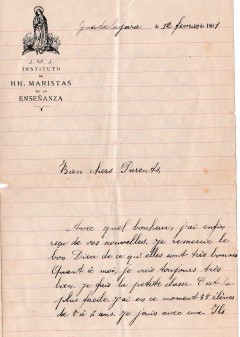 J. M. J.
INSTITUTO
DE
HH. MARISTAS
DE LA
ENSEÑANZA
Guadalajara de 12 février de 1911
Bien chers Parents,
Avec quel bonheur, j'ai enfin
reçu de vos nouvelles. Je remercie le
bon Dieu de ce qu'elles sont très bonnes
Quant à moi, je vais toujours très
bien. Je fais la petite classe. C'est la
plus facile. J'ai en ce moment élèves
de à ans. Je avec eux. Ils